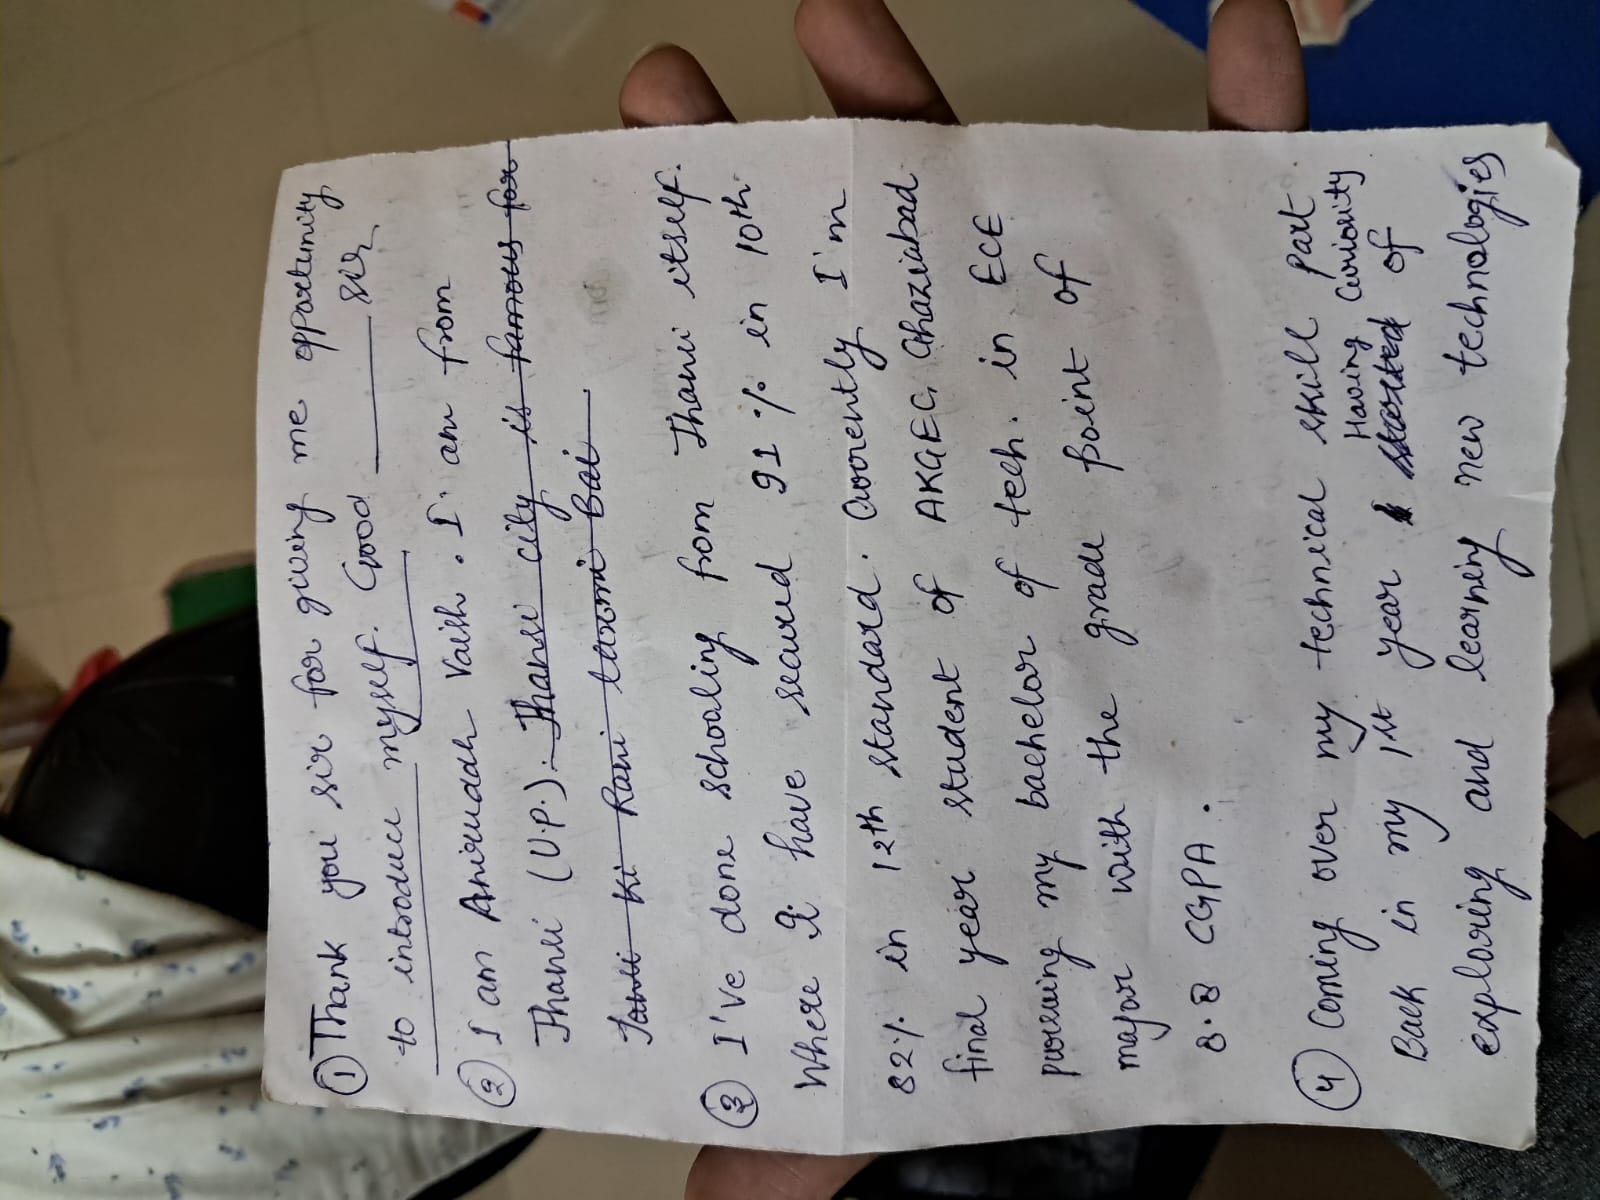 ① Thank you sir for giving me opportunity
to introduce myself. Good ______ sir
② I am Aniruddh Vaish. I am from
Jhansi (U.P.). Jhansi city is famous for
Jansi Ki Rani laxmi Bai
③ I've done schooling from Jhansi itself.
Where I have secured 91% in 10th
82% in 12th standard. Currently I'm
final year student of AKGEC, Ghaziabad
pursuing my bachelor of tech. in ECE
major with the grade point of
8.8 CGPA.
④ Coming over my technical skill part
Having Curiosity
Back in my 1st year I started of
exploring and learning new technologies